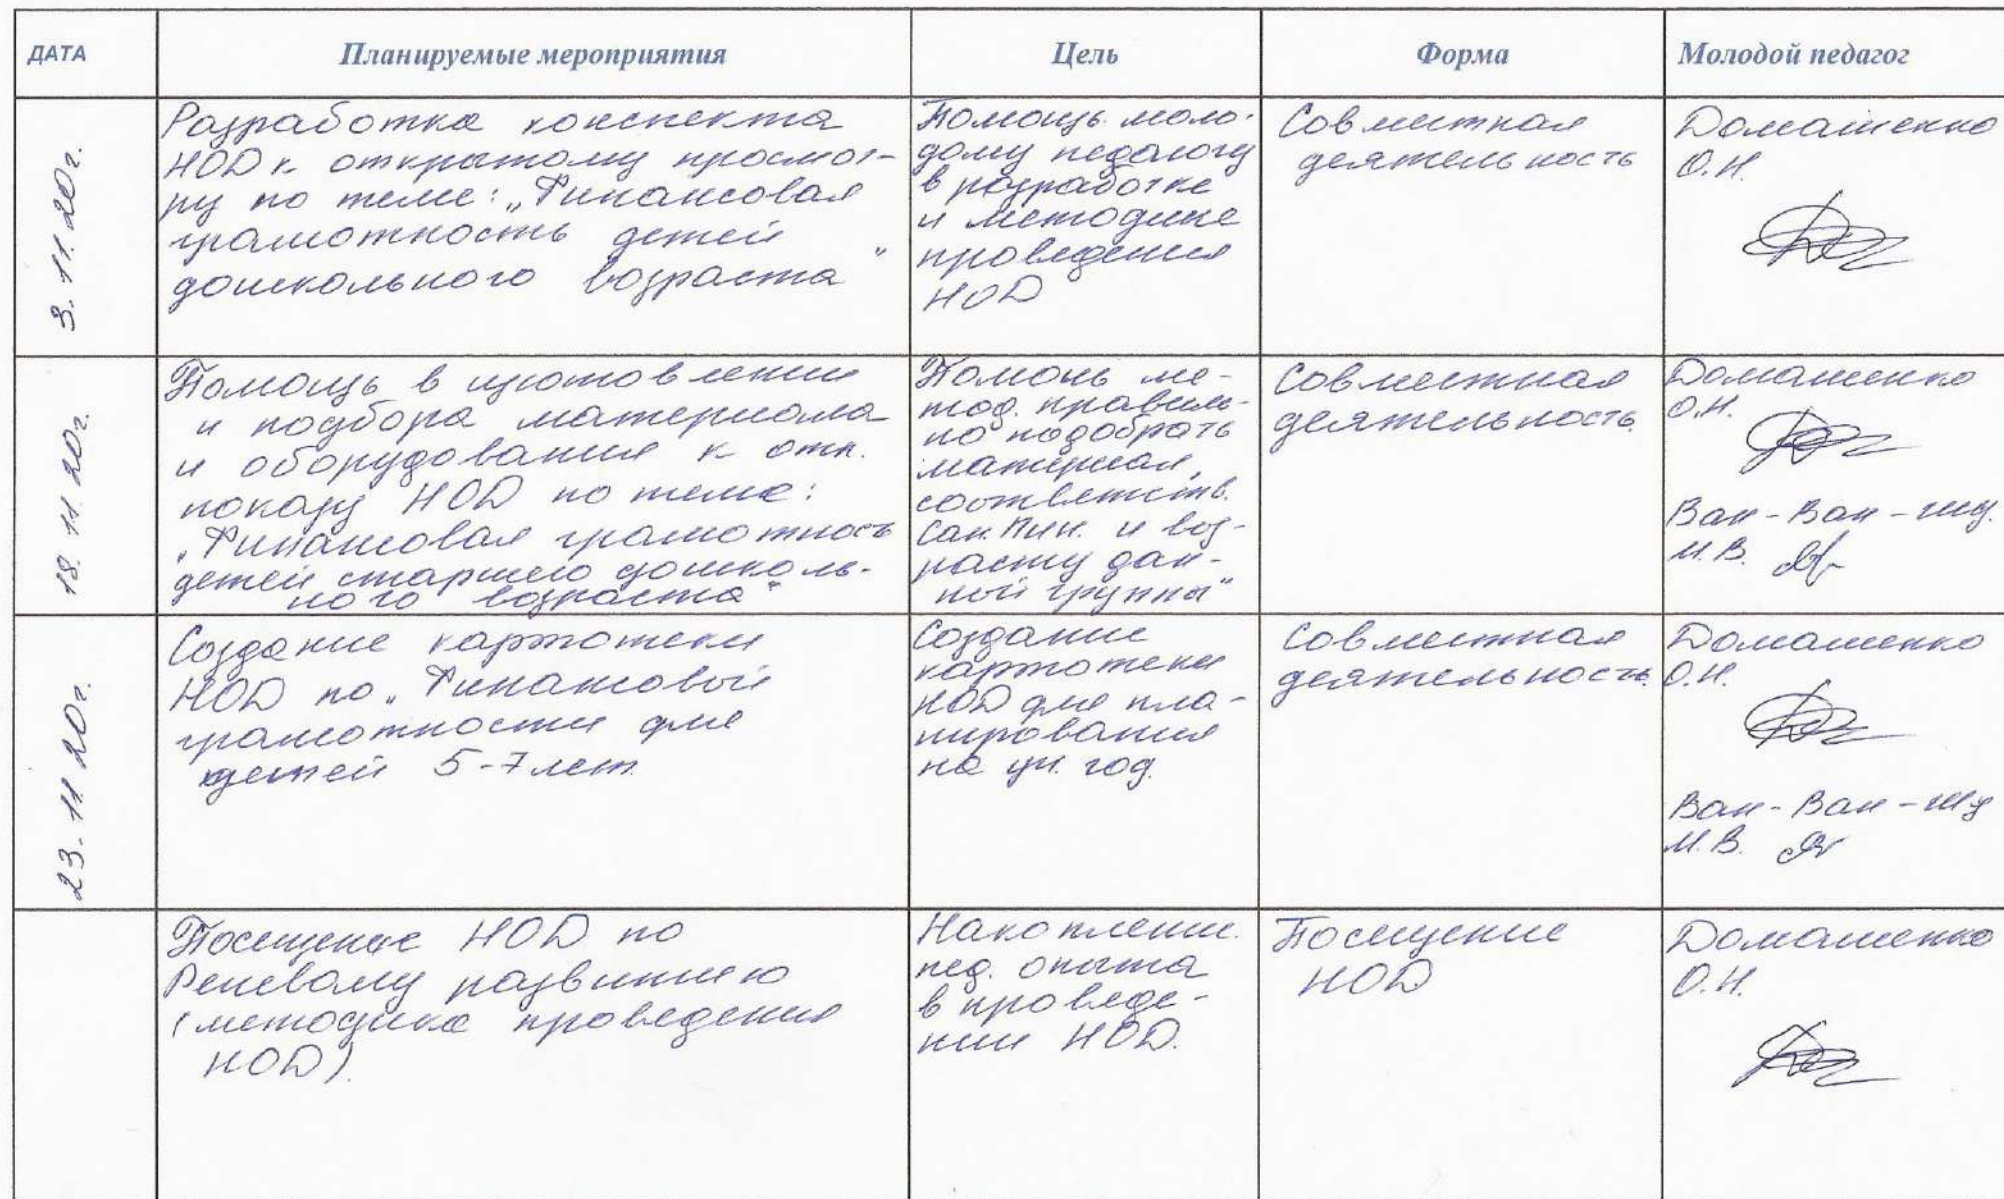 ДАТА Планируемые мероприятия Цель Форма Молодой педагог
3.11.20г.
Разработка конспекта
НОД к открытому просмот-
ру по теме: „Финансовая
грамотность детей
дошкольного возраста"
Помощь моло-
дому педагогу
в разработке
и методике
проведения
НОД
Совместная
деятельность
Домашенко
О.Н.
18.11.20г.
Помощь в изготовлении
и подбора материала
и оборудования к отк.
показу НОД по теме:
„Финансовая грамотность
детей старшего дошколь-
ного возраста"
Помочь ме-
тод. правиль-
но подобрать
материал,
соответств.
Сан.Пин. и воз-
расту дан-
ной группы"
Совместная
деятельность.
Домашенко
О.Н.
Ван-Ван-
М.В.
23.11.20г.
Создание картотеки
НОД по „Финансовой
грамотности для
детей 5-7 лет.
Создание
картотеки
НОД для пла-
нирования
на уч. год.
Совместная
деятельность.
Домашенко
О.Н.
Ван-Ван-
М.В.
Посещение НОД по
Речевому развитию
(методика проведения
НОД).
Накопление
пед. опыта
в проведе-
нии НОД.
Посещение
НОД
Домашенко
О.Н.